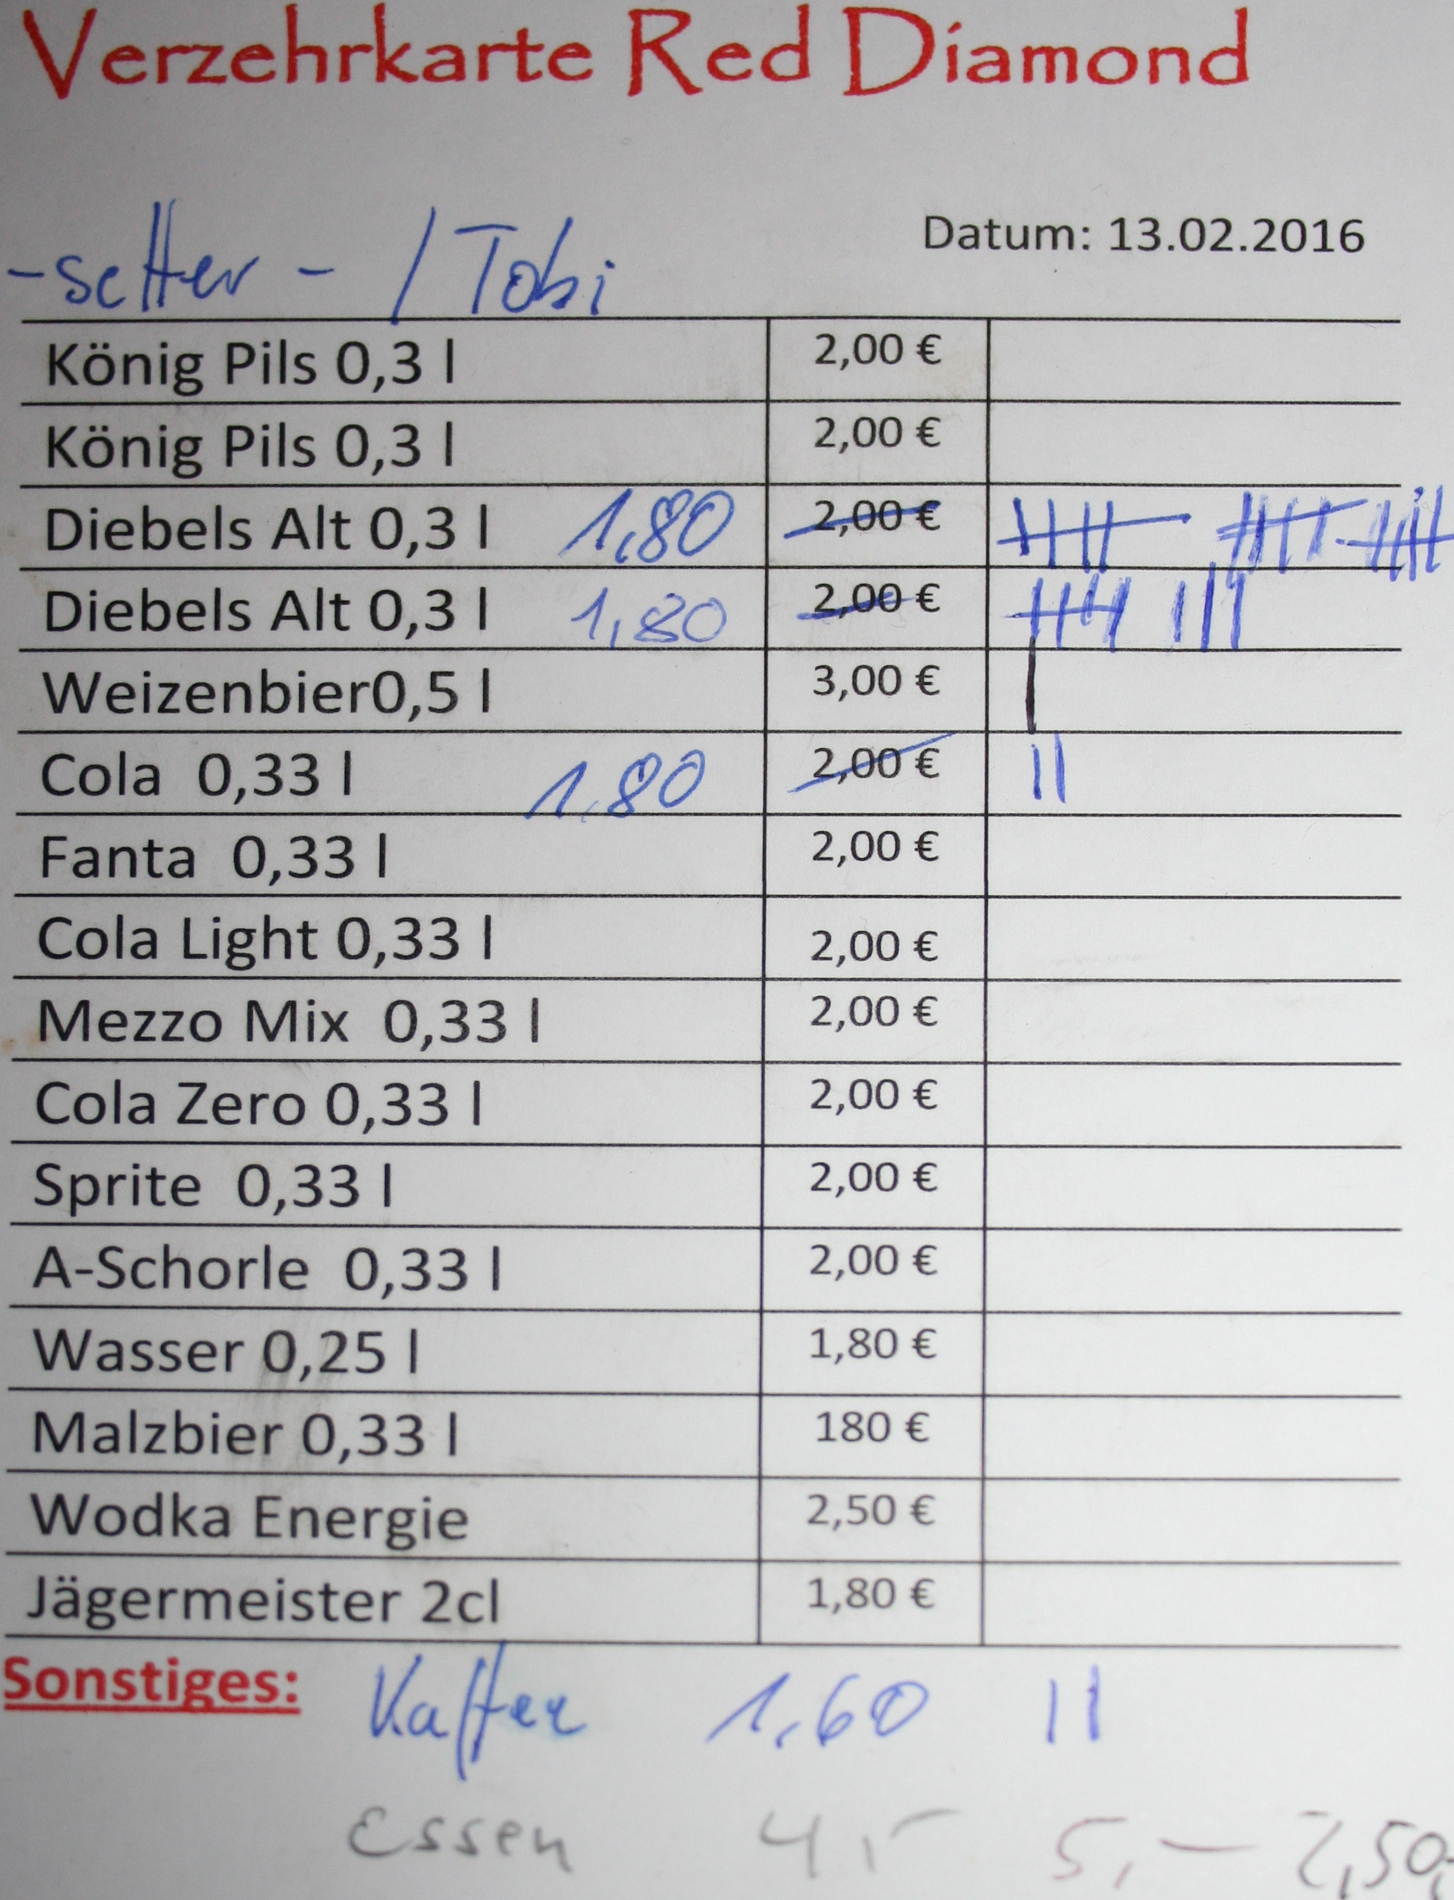 Verzehrkarte Red Diamond
Datum: 13.02.2016
-setter - / Tobi
König Pils 0,3 l 2,00 €
König Pils 0,3 l 2,00 €
Diebels Alt 0,3 l 1,80 2,00 €
Diebels Alt 0,3 l 1,80 2,00 €
Weizenbier0,5 l 3,00 €
Cola 0,33 l 1,80 2,00 €
Fanta 0,33 l 2,00 €
Cola Light 0,33 l 2,00 €
Mezzo Mix 0,33 l 2,00 €
Cola Zero 0,33 l 2,00 €
Sprite 0,33 l 2,00 €
A-Schorle 0,33 l 2,00 €
Wasser 0,25 l 1,80 €
Malzbier 0,33 l 180 €
Wodka Energie 2,50 €
Jägermeister 2cl 1,80 €
Sonstiges: Kaffee 1,60 ||
Essen 4,- 5,- 2,50,-